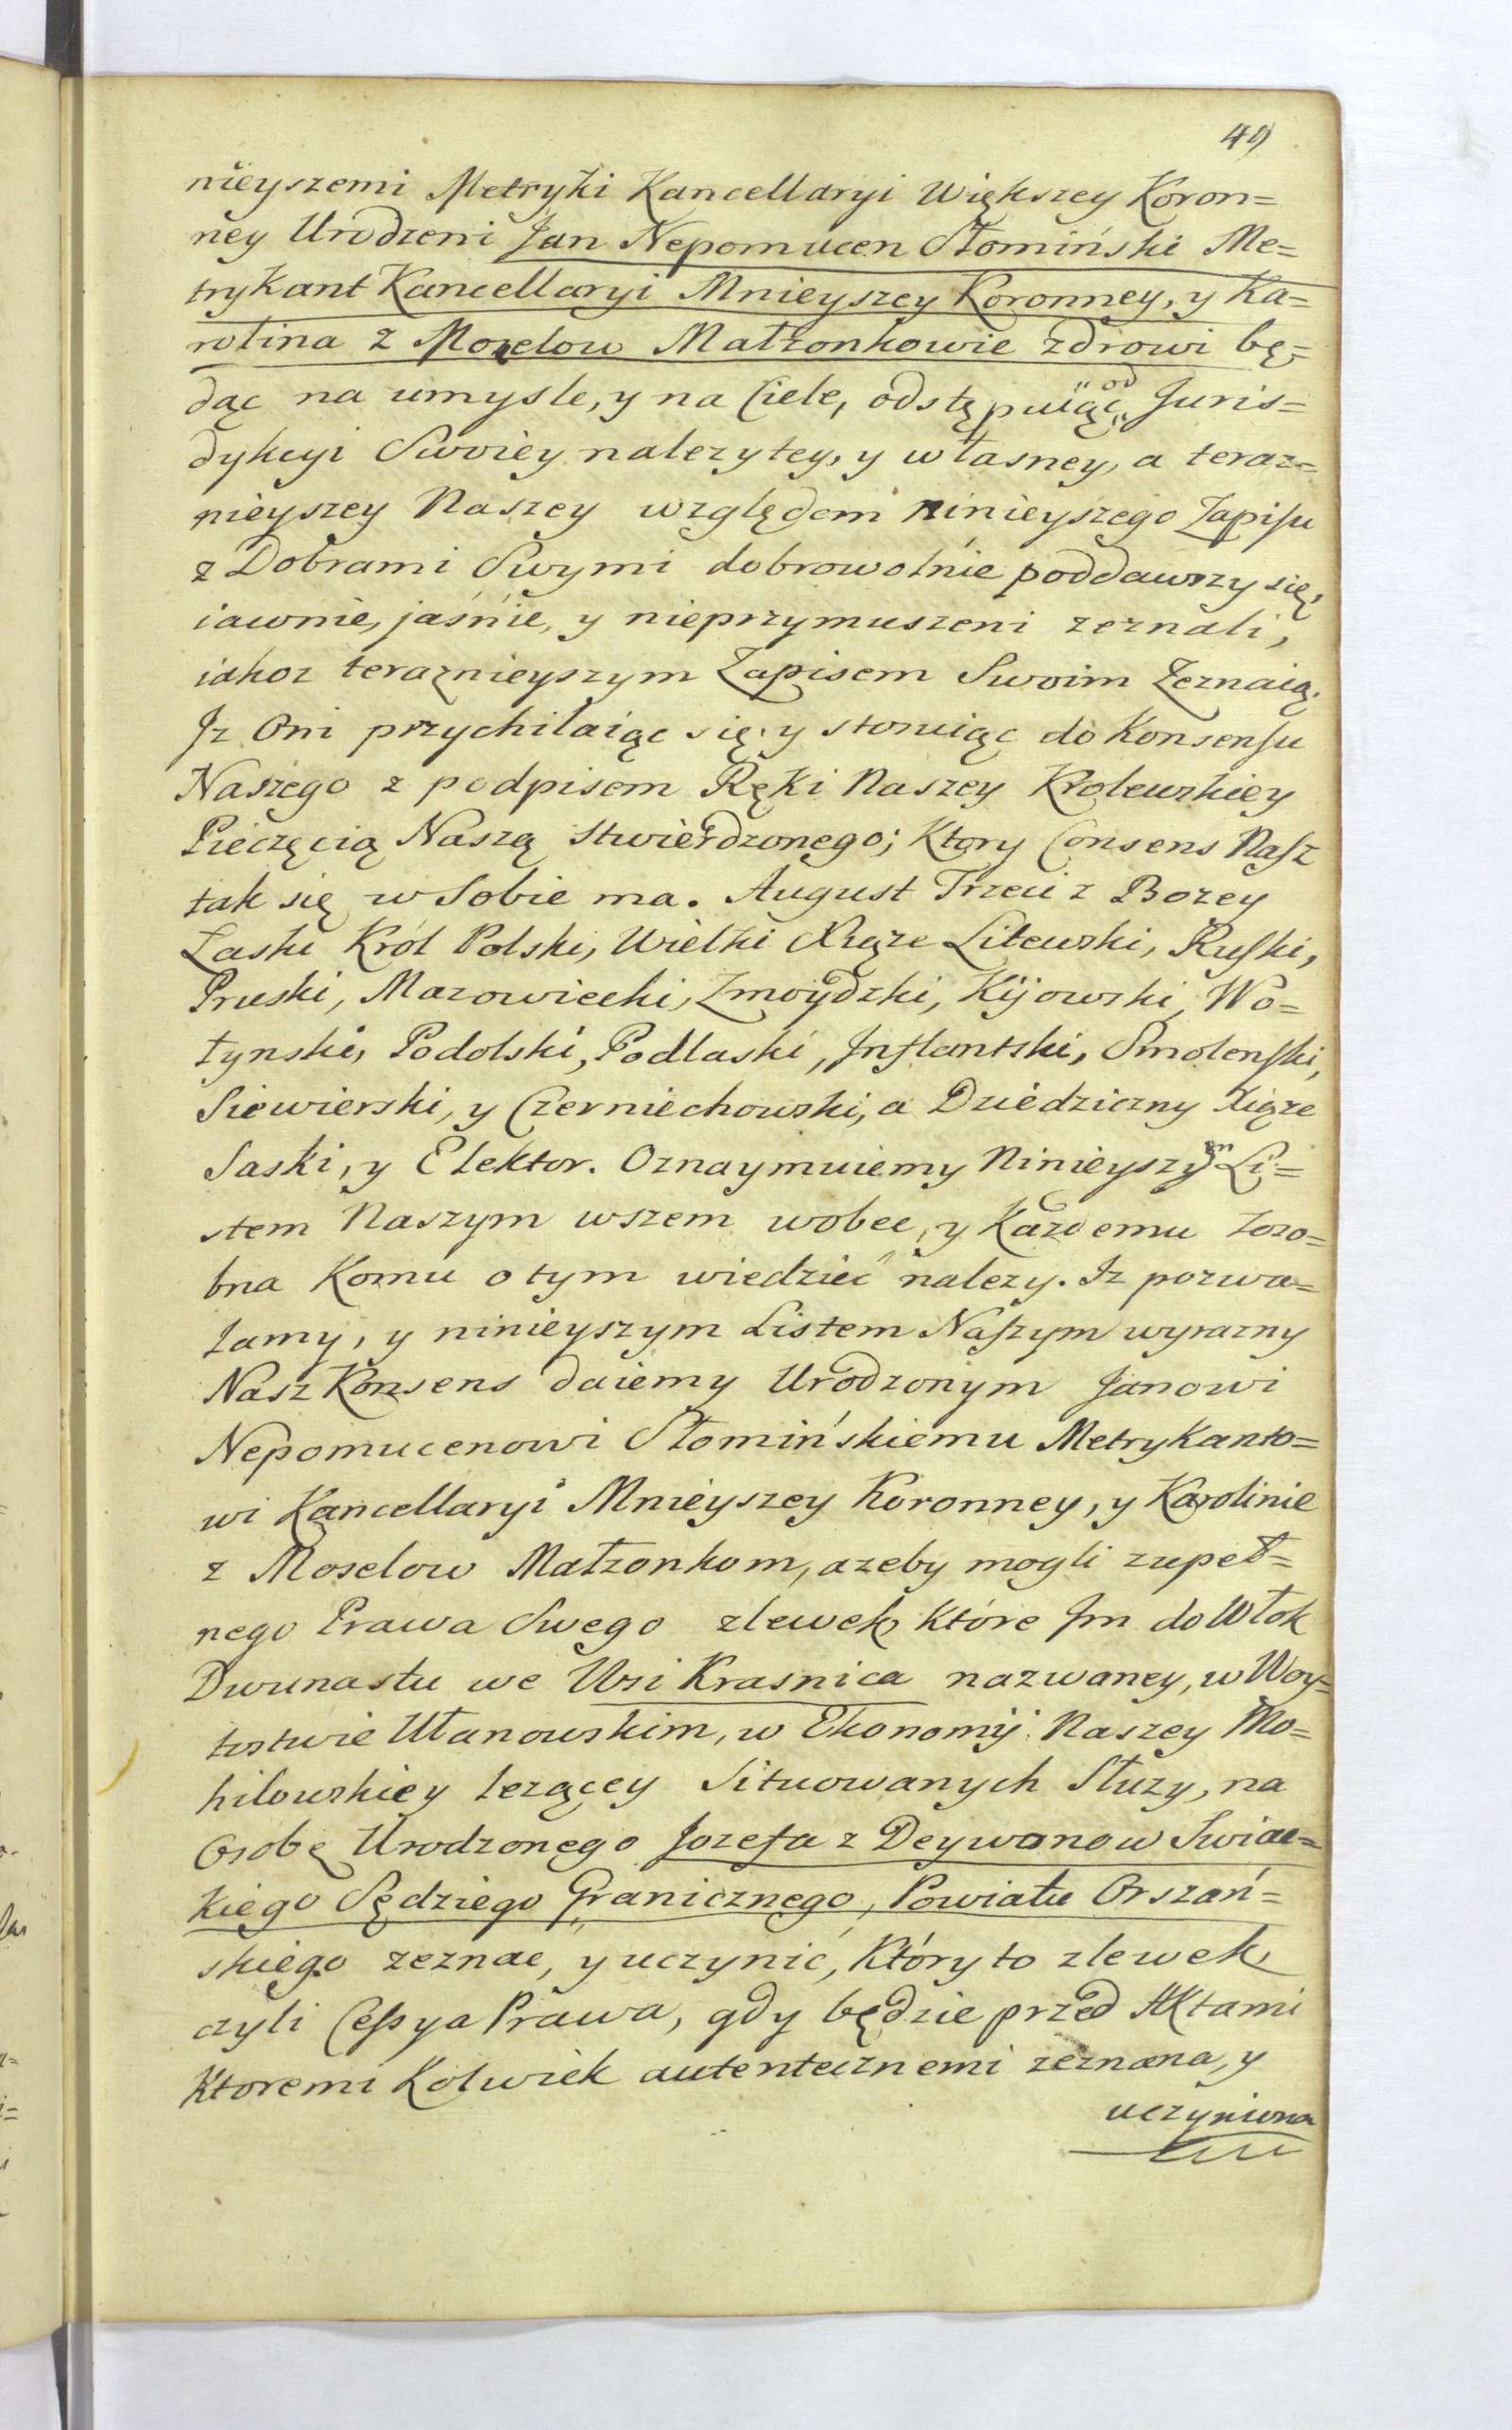 49
nieyszemi Metryki Kancellaryi Większey Koron=
ney Urodzeni Jan Nepomucen Słomiński Me=
trykant Kancellaryi Mnieyszey Koronney, y Ka=
rolina z Moselow Małżonkowie zdrowi bę=
dąc na umysle, y na Ciele, odstępuiąc od Juris=
dykcyi Swoiey nalezytey, y własney, a teraz=
nieyszey Naszey względem ninieyszego Zapisu
z Dobrami Swymi dobrowolnie poddawszy się,
iawnie, jaśnie, y nieprzymuszeni zeznali,
iakoz teraznieyszym Zapisem Swoim Zeznaią.
Jz Oni przychilaiąc się y stosuiąc do Konsensu
Naszego z podpisem Ręki Naszey Krolewskiey
Pieczęcią Naszą stwierdzonego; Ktory Consens Nasz
tak się w Sobie ma. August Trzeci z Bozey
Łaski Król Polski, Wielki Xiąze Litewski, Ruski,
Pruski, Mazowiecki, Zmoydzki, Kijowski, Wo=
łynski, Podolski, Podlaski, Inflantski, Smolenski,
Siewierski, y Czerniechowski, a Dziedziczny Xiąze
Saski, y Elektor. Oznaymuiemy Ninieyszym Li=
stem Naszym wszem wobec, y Kazdemu zoso=
bna Komu o tym wiedzieć nalezy. Iz pozwa=
lamy, y ninieyszym Listem Naszym wyrazny
Nasz Konsens daiemy Urodzonym Janowi
Nepomucenowi Słomińskiemu Metrykanto=
wi Kancellaryi Mnieyszey Koronney, y Karolinie
z Moselow Małzonkom, azeby mogli zupeł=
nego Prawa Swego zlewek, które Jm do Włok
Dwunastu we Wsi Krasnica nazwaney, w Woy=
tostwie Ułanowskim, w Ekonomij Naszey Mo=
hilowskiey lezącey Situowanych Słuzy, na
Osobę Urodzonego Jozefa z Deywanow Swiac=
kiego Sędziego Granicznego, Powiatu Orszań=
skiego zeznac, y uczynić, Który to zlewek
czyli Cessya Prawa, gdy będzie przed Aktami
Ktoremi Kolwiek autentecznemi zeznana, y
uczyniona